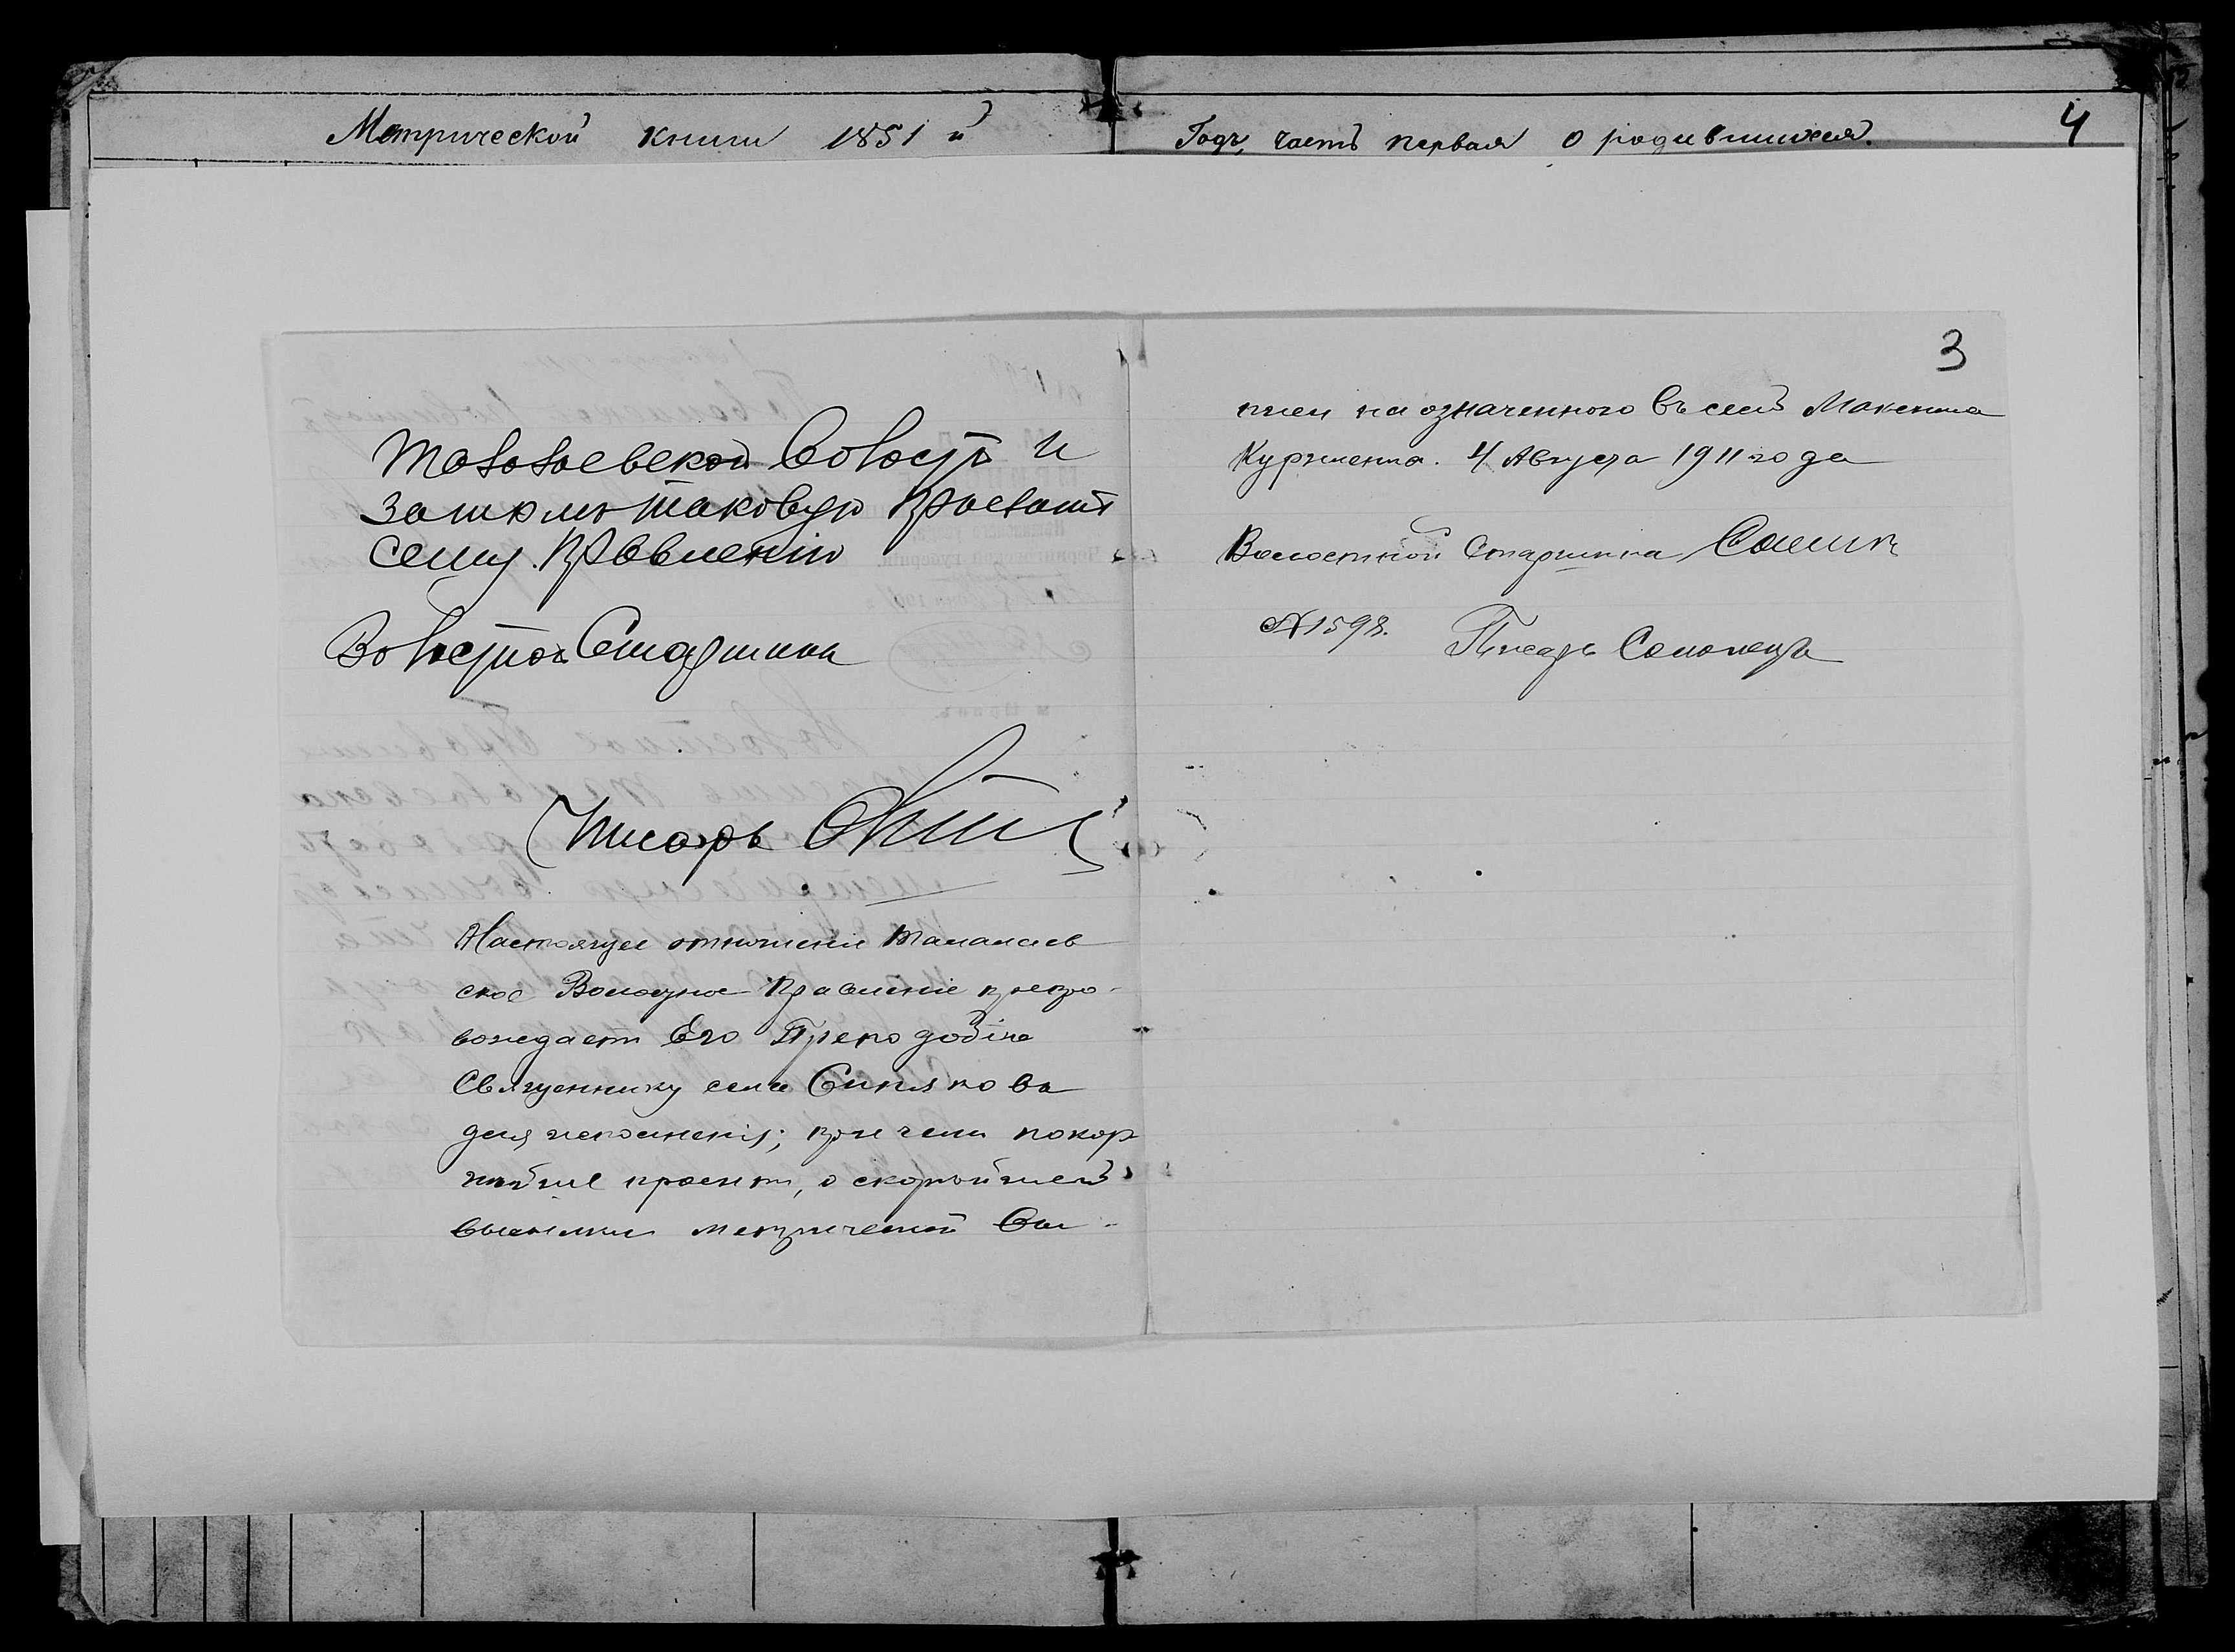 Метрической книги 1851 й Годъ, часть первая о родившихся.
4
3
Талалаевской волости и
затѣмъ таковую прислать
сему Правленію
Волостной Старшина
Писарь
Настоящее отношеніе Талалаев
ское Волостное Правленіе препро-
вождаетъ Его Преподобію
Священнику села Синякова
для исполненія; при чемъ покор
нѣйше проситъ, о скорѣйшей
высылки метрической вы-
писи на означеннаго въ семъ Максима
Куриленка. 4 Августа 1911 года
Волостной Старшина
№ 1598.
Писарь